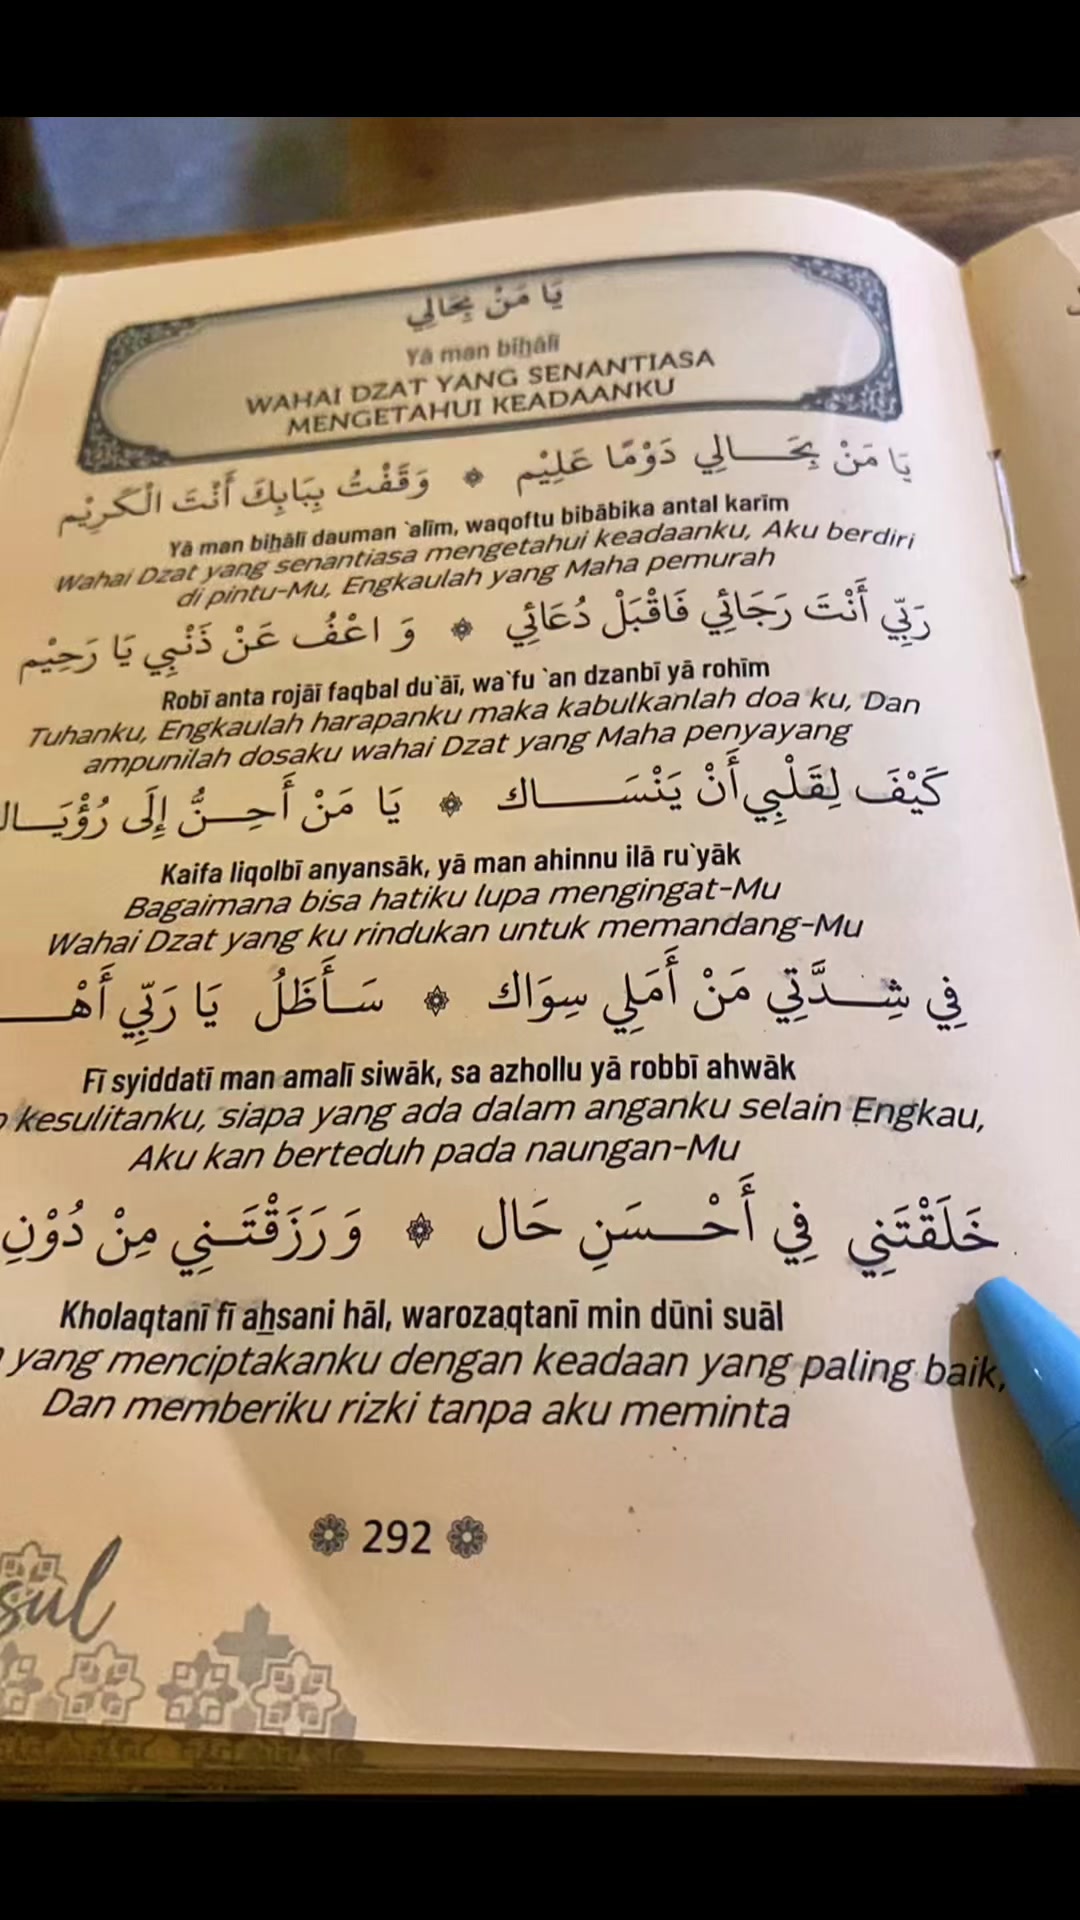 يَا مَنْ بِحَالِي
Yā man biḥālī
WAHAI DZAT YANG SENANTIASA
MENGETAHUI KEADAANKU
يَا مَنْ بِحَـــالِي دَوْمًا عَلِيْم ۞ وَقَفْتُ بِبَابِكَ أَنْتَ الْكَرِيْم
Yā man biḥālī dauman `alīm, waqoftu bibābika antal karīm
Wahai Dzat yang senantiasa mengetahui keadaanku, Aku berdiri
di pintu-Mu, Engkaulah yang Maha pemurah
رَبِّي أَنْتَ رَجَائِي فَاقْبَلْ دُعَائِي ۞ وَ اعْفُ عَنْ ذَنْبِي يَا رَحِيْم
Robī anta rojāī faqbal du`āī, wa`fu `an dzanbī yā rohīm
Tuhanku, Engkaulah harapanku maka kabulkanlah doa ku, Dan
ampunilah dosaku wahai Dzat yang Maha penyayang
كَيْفَ لِقَلْبِي أَنْ يَنْسَـــاك ۞ يَا مَنْ أَحِـــنُّ إِلَى رُؤْيَـــاك
Kaifa liqolbī anyansāk, yā man ahinnu ilā ru`yāk
Bagaimana bisa hatiku lupa mengingat-Mu
Wahai Dzat yang ku rindukan untuk memandang-Mu
فِي شِـــدَّتِي مَنْ أَمَلِي سِوَاك ۞ سَـأَظَلُ يَا رَبِّي أَهْـــ
Fī syiddatī man amalī siwāk, sa azhollu yā robbī ahwāk
kesulitanku, siapa yang ada dalam anganku selain Engkau,
Aku kan berteduh pada naungan-Mu
خَلَقْتَنِي فِي أَحْـــسَنِ حَال ۞ وَرَزَقْتَـــنِي مِنْ دُوْنِ
Kholaqtanī fī aḥsani hāl, warozaqtanī min dūni suāl
yang menciptakanku dengan keadaan yang paling baik,
Dan memberiku rizki tanpa aku meminta
292
sul